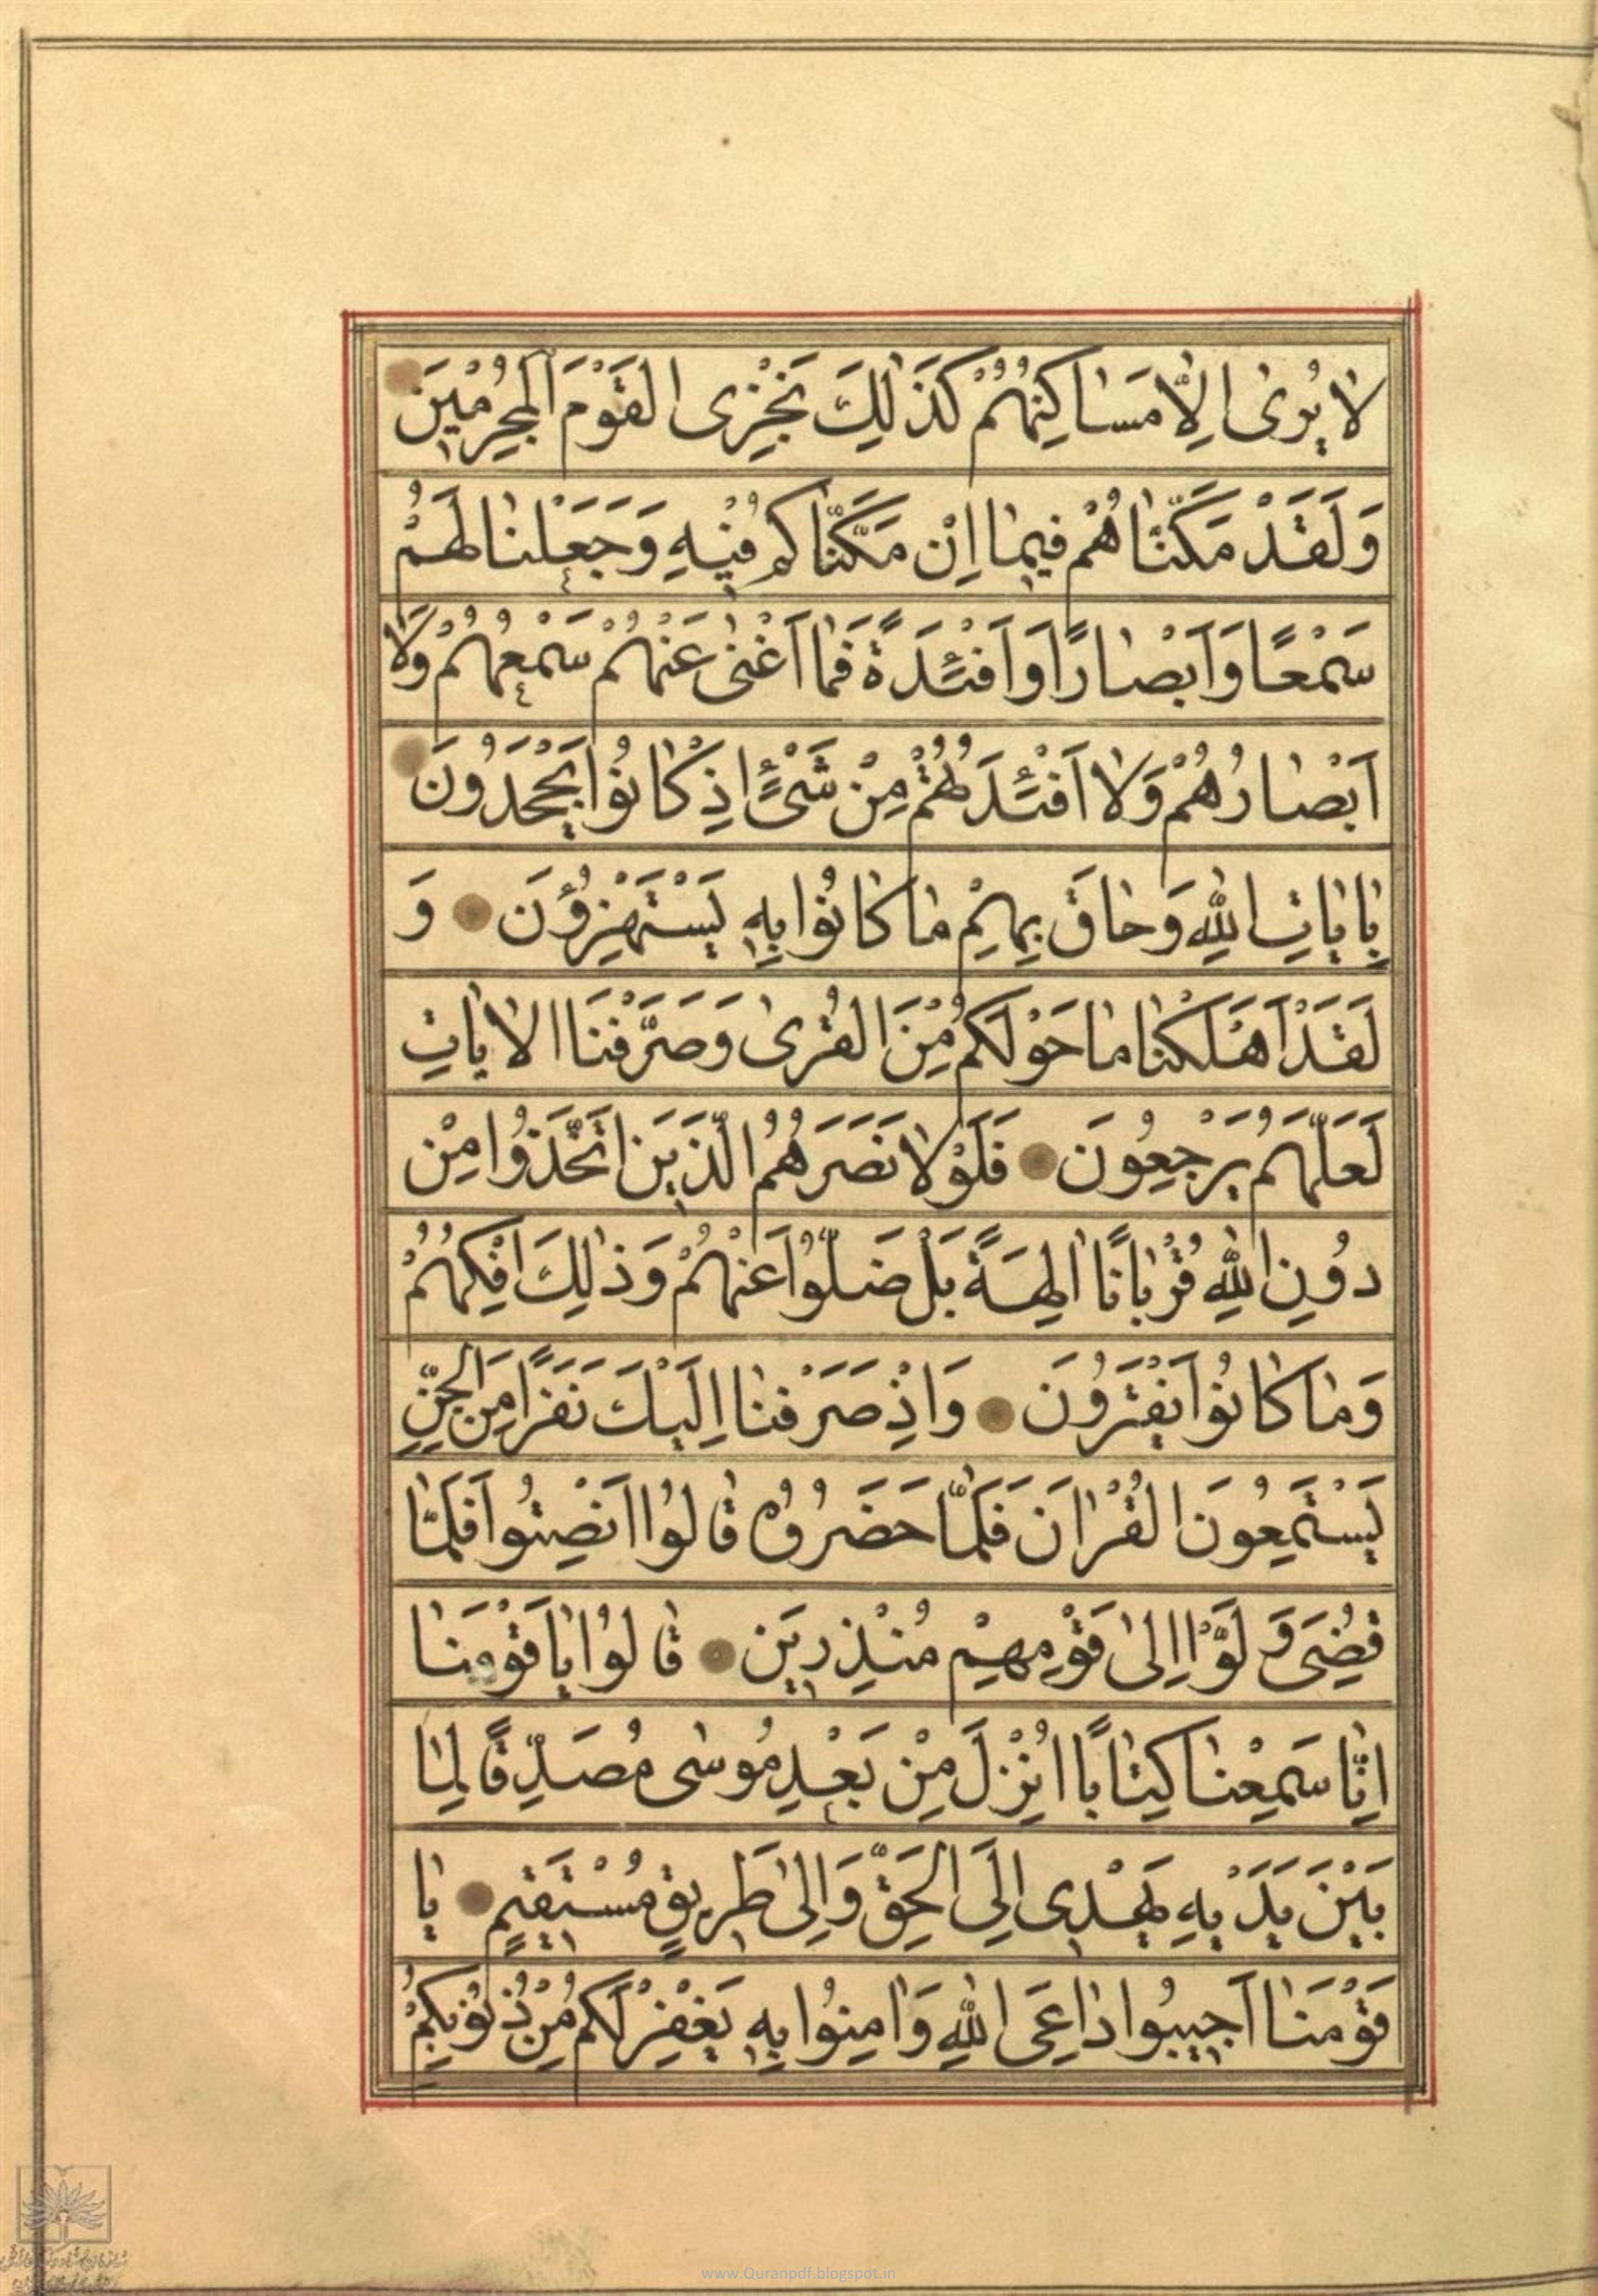 لا يُرىٰ اِلّا مَساكِنُهُمْ كَذٰلِكَ نَجْزِى القَوْمَ المُجْرِمْينَ
وَلَقَدْ مَكَّنّاهُمْ فيمٰا اِنْ مَكَّنّاكُمْ فْيهِ وَجَعَلْنٰا لَهُمْ
سَمْعًا وَاَبْصٰارًا وَاَفْئِدَةً فَمٰا اَغْنىٰ عَنْهُمْ سَمْعُهُمْ وَلا
اَبْصٰارُهُمْ وَلا اَفْئِدَتُهُمْ مِنْ شَىْءٍ اِذْ كٰانُوا يَجْحَدُونَ
بِاٰيٰاتِ اللّٰهِ وَحٰاقَ بِهِمْ مٰا كٰانُوا بِهِ يَسْتَهْزِؤُنَ وَ
لَقَدْ اَهْلَكْنٰا مٰا حَوْلَكُمْ مِنَ القُرىٰ وَصَرَّفْنَا الاٰيٰاتِ
لَعَلَّهُمْ يَرْجِعُونَ فَلَوْلا نَصَرَهُمُ الَّذينَ اتَّخَذُوا مِنْ
دُونِ اللّٰهِ قُرْبٰانًا اٰلِهَةً بَلْ ضَلُّوا عَنْهُمْ وَذٰلِكَ اِفْكُهُمْ
وَمٰا كٰانُوا يَفْتَرُونَ وَاِذْ صَرَفْنٰا اِلَيْكَ نَفَرًا مِنَ الجِنِّ
يَسْتَمِعُونَ القُرْاٰنَ فَلَمّا حَضَرُوهُ قٰالُوا اَنْصِتُوا فَلَمّا
قُضِىَ وَلَّوْا اِلىٰ قَوْمِهِمْ مُنْذِرينَ قٰالُوا يٰا قَوْمَنٰا
اِنّا سَمِعْنٰا كِتٰابًا اُنْزِلَ مِنْ بَعْدِ مُوسٰى مُصَدِّقًا لِمٰا
بَيْنَ يَدَيْهِ يَهْدى اِلَى الحَقِّ وَاِلىٰ طَريقٍ مُسْتَقيمٍ يٰا
قَوْمَنٰا اَجيبُوا دٰاعِىَ اللّٰهِ وَاٰمِنُوا بِهِ يَغْفِرْ لَكُمْ مِنْ ذُنُوبِكُمْ
www.Quranpdf.blogspot.in